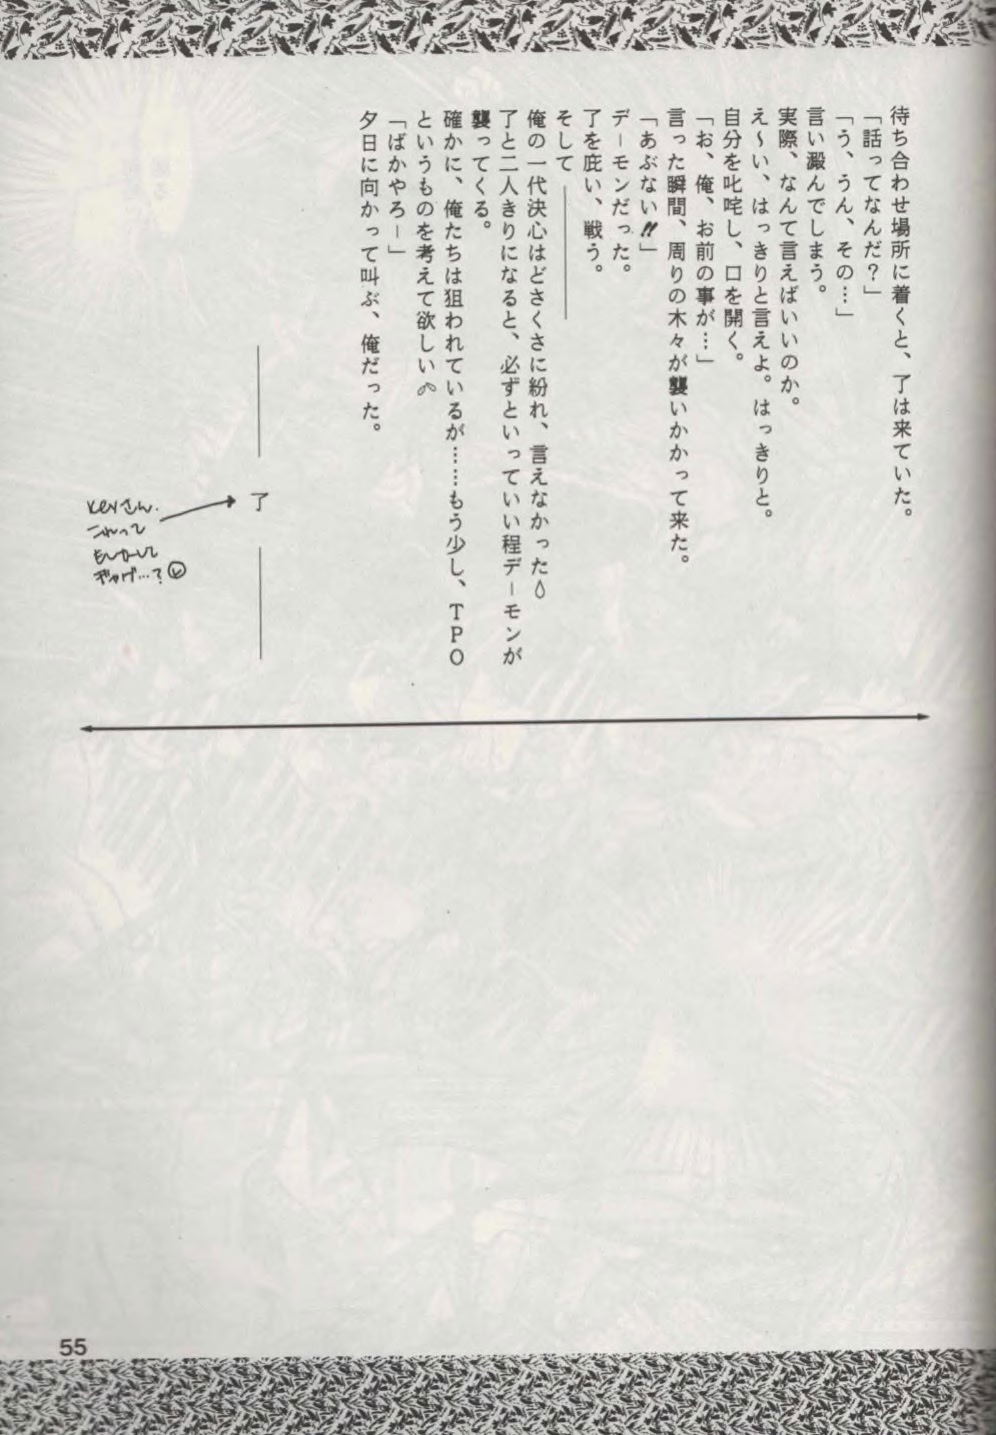 待ち合わせ場所に着くと、了は来ていた。
「話ってなんだ？」
「う、うん、その…」
言い澱んでしまう。
実際、なんて言えばいいのか。
え～い、はっきりと言えよ。はっきりと。
自分を叱咤し、口を開く。
「お、俺、お前の事が…」
言った瞬間、周りの木々が襲いかかって来た。
「あぶない!!」
デーモンだった。
了を庇い、戦う。
そして――――
俺の一代決心はどさくさに紛れ、言えなかった
了と二人きりになると、必ずといっていい程デーモンが
襲ってくる。
確かに、俺たちは狙われているが……もう少し、ＴＰＯ
というものを考えて欲しい
「ばかやろー」
夕日に向かって叫ぶ、俺だった。
――― 了 ―――
Keyさん.
これって
もしかして
ギャグ…？
55